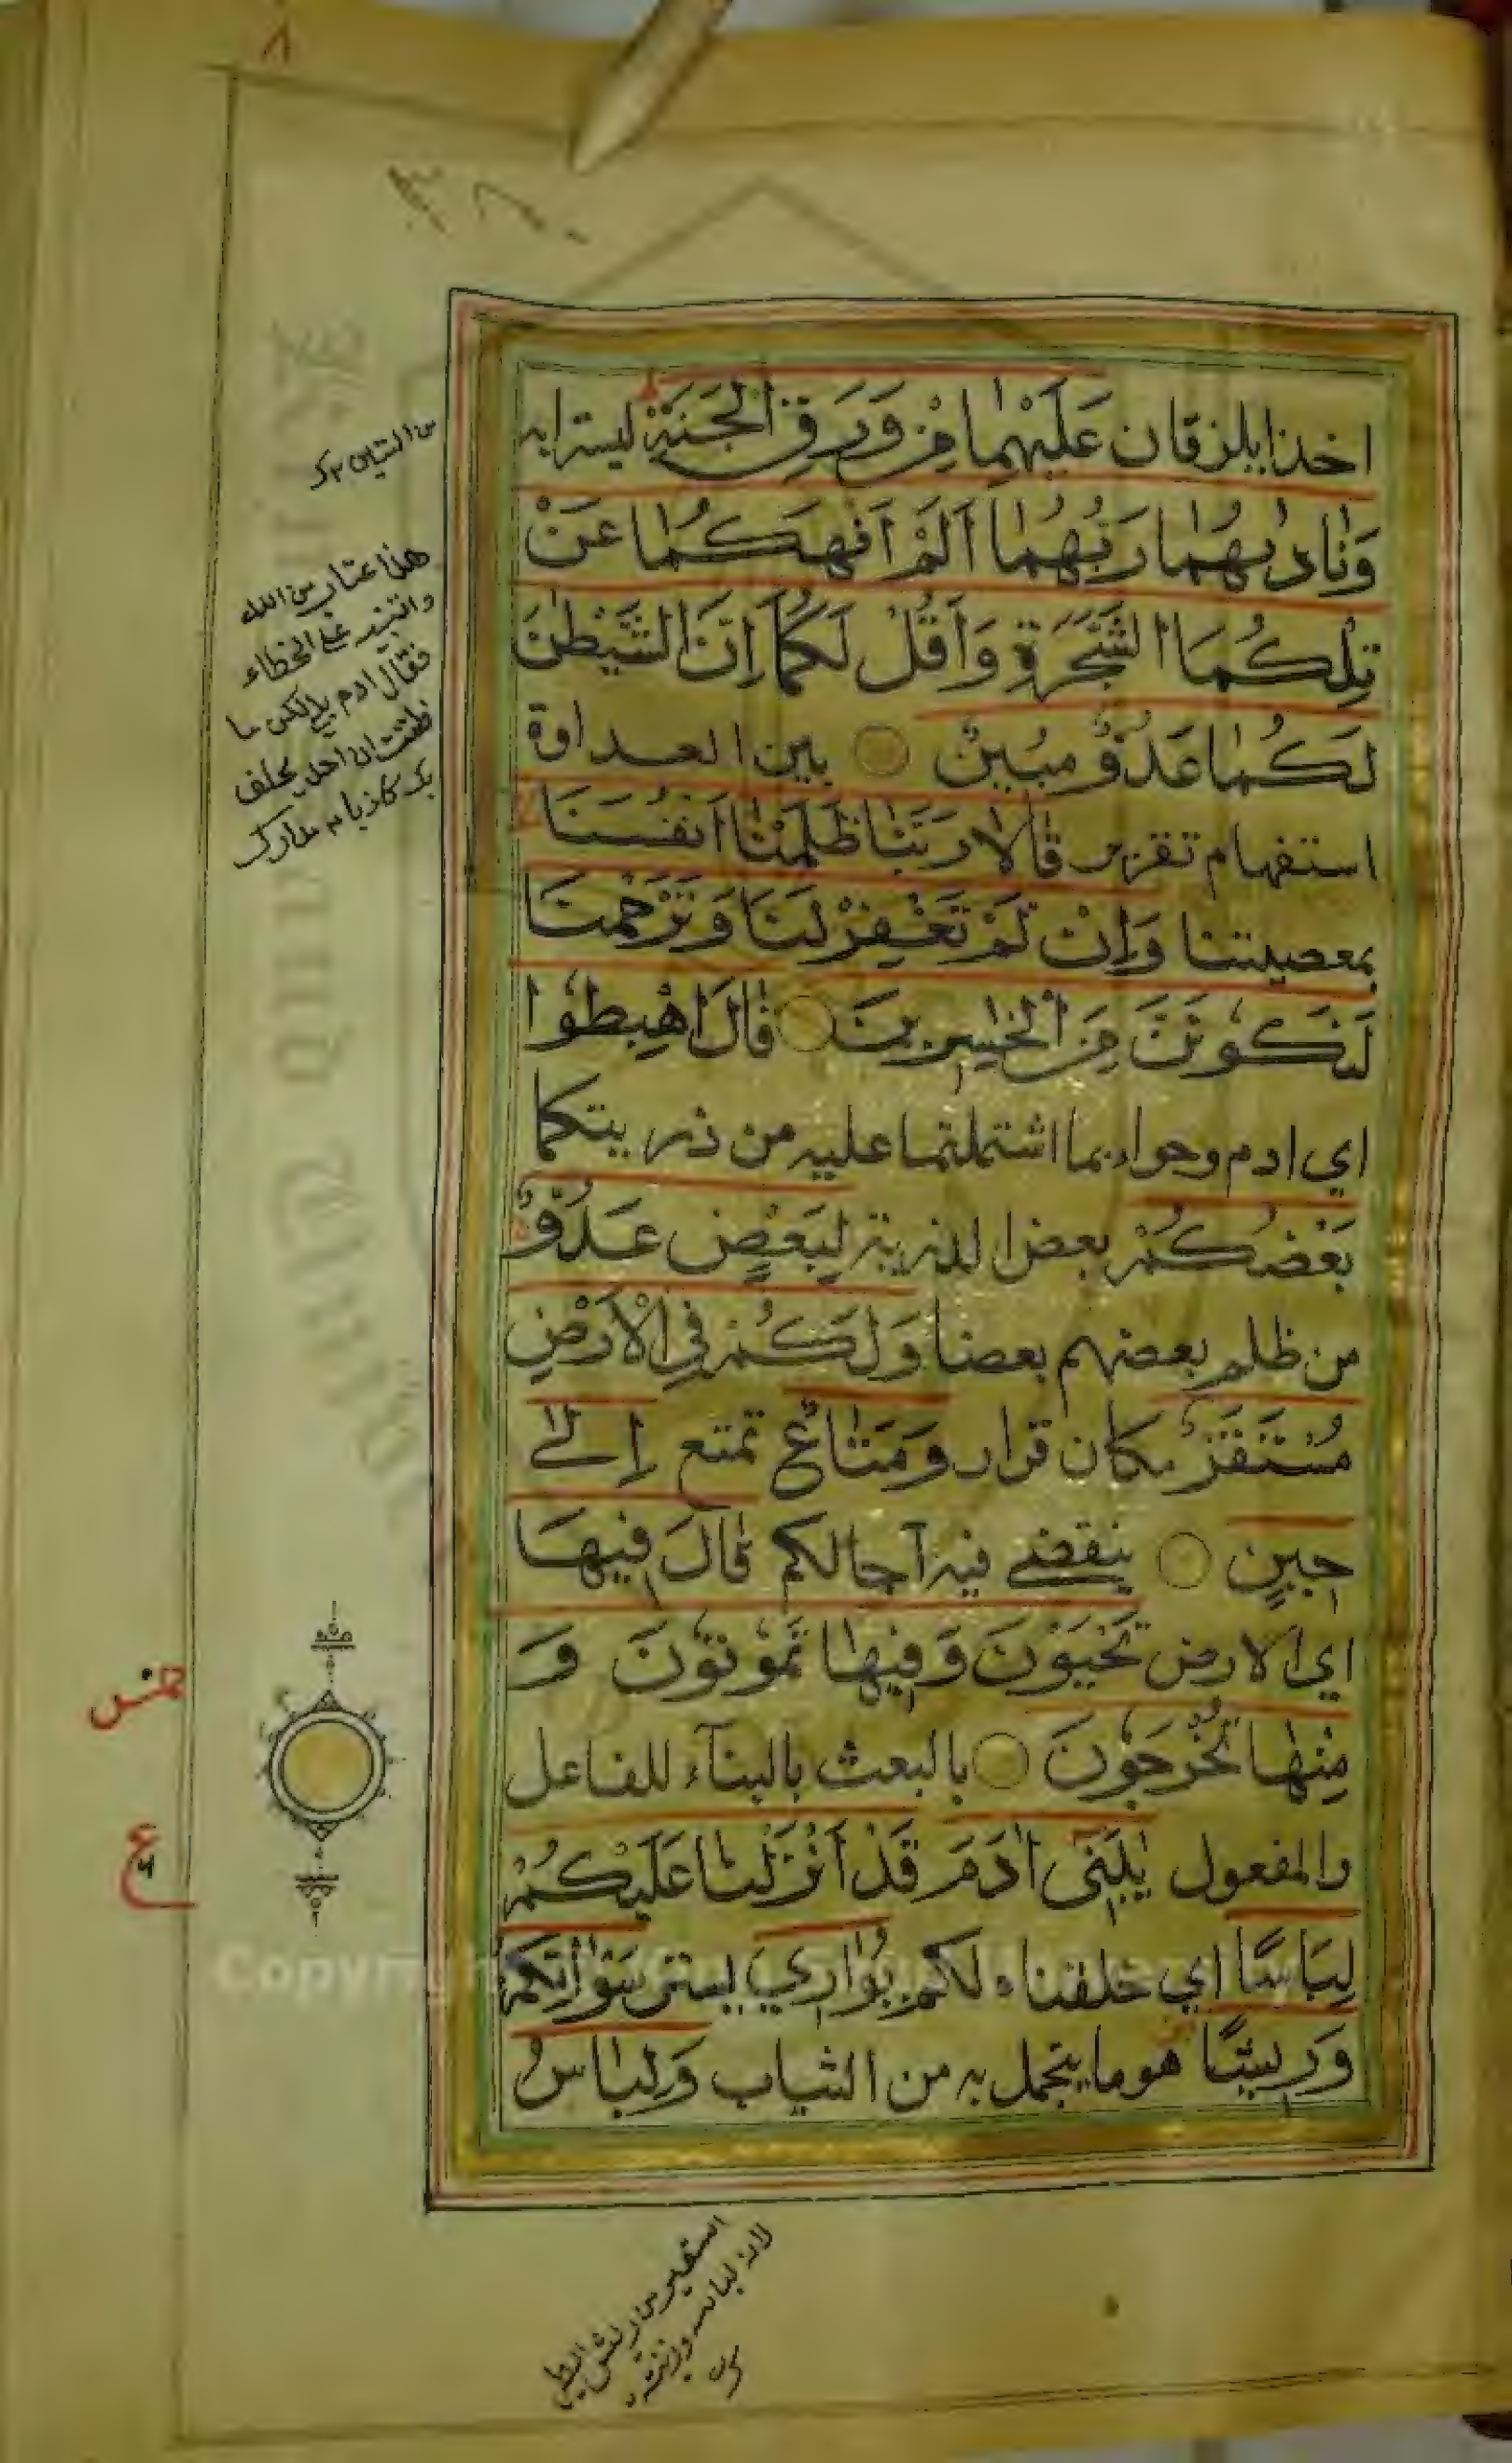 ٨
اخذا يلزقان عَلَيْهِمَا مِنْ وَرَقِ الْجَنَّةِ ليستترا به
وَنَادٰىهُمَا رَبُّهُمَا اَلَمْ اَنْهَكُمَا عَنْ
تِلْكُمَا الشَّجَرَةِ وَاَقُلْ لَكُمَا اِنَّ الشَّيْطٰنَ
لَكُمَا عَدُوٌّ مُبِينٌ بين العداوة
استفهام تقرير قَالَا رَبَّنَا ظَلَمْنَا اَنْفُسَنَا
بمعصيتنا وَاِنْ لَمْ تَغْفِرْ لَنَا وَتَرْحَمْنَا
لَنَكُونَنَّ مِنَ الْخٰسِرِينَ قَالَ اهْبِطُوا
اي ادم وحواء بما اشتملتما عليه من ذريتكما
بَعْضُكُمْ بعض الذرية لِبَعْضٍ عَدُوٌّ
من ظلم بعضهم بعضا وَلَكُمْ فِي الْاَرْضِ
مُسْتَقَرٌّ مكان قرار وَمَتَاعٌ تمتع اِلٰى
حِينٍ ينقضي فيه آجالكم قَالَ فِيهَا
اي الارض تَحْيَوْنَ وَفِيهَا تَمُوتُونَ وَ
مِنْهَا تُخْرَجُونَ بالبعث بالبنآء للفاعل
والمفعول يٰبَنِىٓ اٰدَمَ قَدْ اَنْزَلْنَا عَلَيْكُمْ
لِبَاسًا اي خلقناه لكم يُوَارِي يستر سَوْاٰتِكُمْ
وَرِيشًا هو ما يتجمل به من الثياب وَلِبَاسُ
هذا عتاب من الله
والتنبيه على الخطاء
فقال ادم بلى لكن ما
ظننت ان احدا يحلف
بك كاذبا مدارك
خمس
ع
Copyr